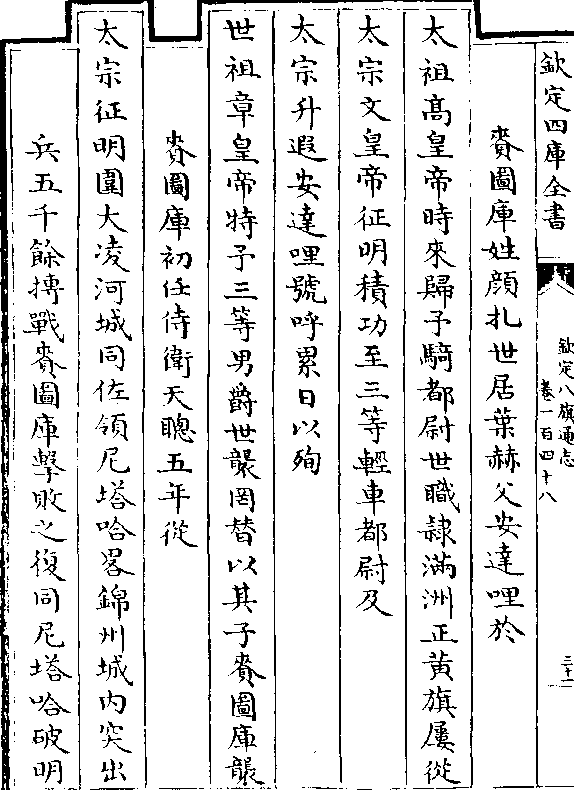 欽定四庫全書
欽定八旗通志
卷一百四十八
三十一
賚圖庫姓顔扎世居葉赫父安達哩於
太祖髙皇帝時來歸予騎都尉世職隷滿洲正黄旗屢從
太宗文皇帝征明積功至三等輕車都尉及
太宗升遐安達哩號呼累日以殉
世祖章皇帝特予三等男爵世襲罔替以其子賚圖庫襲
賚圖庫初任侍衛天聰五年從
太宗征明圍大凌河城同佐領尼塔哈畧錦州城内突出
兵五千餘搏戰賚圖庫擊敗之復同尼塔哈破明